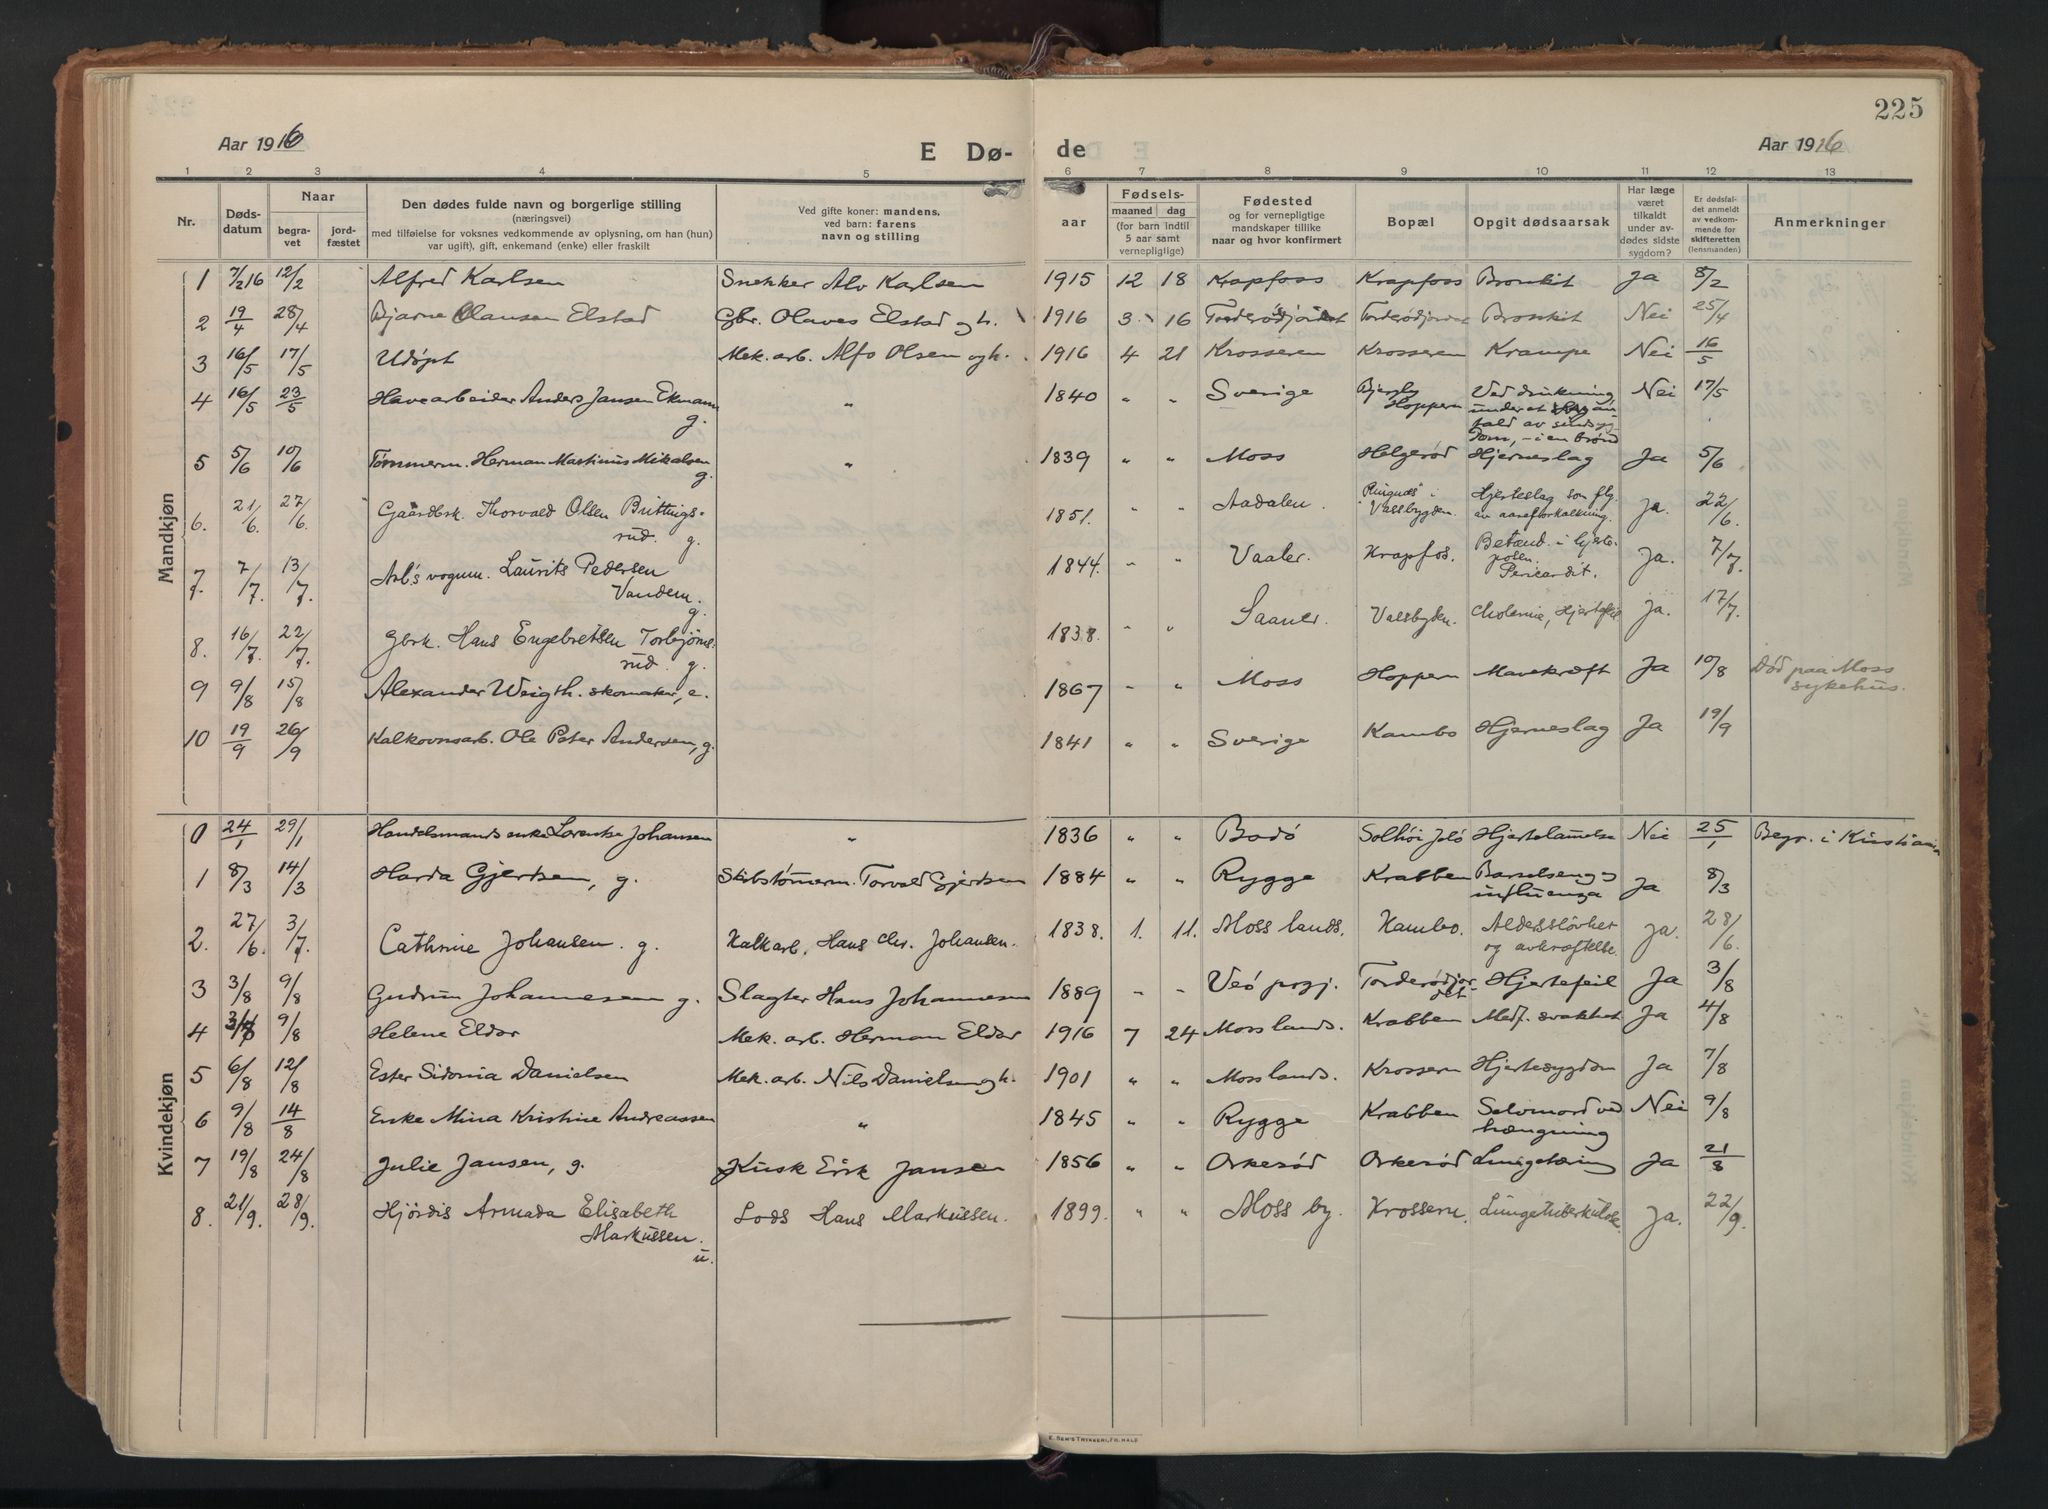 225
Aar 1916 E Dø- de Aar 1916
1 2 3 4 5 6 7 8 9 10 11 12 13
Nr. Døds-datum Naar begra-vet jord-fæstet Den dødes fulde navn og borgerlige stilling (næringsvei) med tilføielse for voksnes vedkommende av oplysning, om han (hun) var ugift), gift, enkemand (enke) eller fraskilt Ved gifte koner: mandens, ved barn: farens navn og stilling aar Fødsels- maaned dag (for barn indtil 5 aar samt vernepligtige) Fødested og for vernepligtige mandskaper tillike naar og hvor konfirmert Bopæl Opgit dødsaarsak Har læge været tilkaldt under av-dødes sidste sygdom? Er dødsfal-det anmeldt av vedkom-mende for skifteretten (lensmanden) Anmerkninger
Mandkjøn
1 7/2 16 12/2 Alfred Karlsen Snekker Alv Karlsen 1915 12 18 Krapfoss Krapfoss Bronkit Ja 8/2
2 19/4 28/4 Bjarne Olausen Elstad Gbr. Olaves Elstad og h. 1916 3 16 Torderødjordet Torderødjordet Bronkit Nei 25/4
3 16/5 17/5 Udøpt Mek. arb. Alfo Olsen og h. 1916 4 21 Krosseren Krosseren Krampe Nei 16/5
4 16/5 23/5 Havearbeider Anders Jansen Ekmann g. " 1840 " " Sverige Bjergby Hoppern Ved drukning under et anfald av sindsygdom, - i en brønd Nei 17/5
5 5/6 10/6 Tømmerm. Herman Martinius Mikalsen g. " 1839 " " Moss Helgerød Hjerneslag Ja 5/6
6. 21/6. 27/6. Gaardbrk. Thorvald Olsen Brittingsrud. g. 1851. " " Aadalen. "Ringnæs" i Vassbygden. Hjerteslag som flg. av aareforkalkning. Ja. 22/6.
7. 7/7. 13/7. Arb's vognm. Laurits Pedersen Vandem. g. 1844. " " Vaaler. Krapfos. Betænd. i hjerteposen. Pericardit. Ja. 7/7.
8. 16/7. 22/7. Gbrk. Hans Engebretsen Torbjørnsrud. g. 1838. " " Saaner. Valsbyden. Cholemie, Hjertefeil Ja. 17/7.
9 9/8 15/8 Alexander Weigth. skomaker, e. 1867 " " Moss Hoppern Mavekræft Ja 10/8 Død paa Moss sykehus.
10 19/9 26/9 Kalkovnsarb. Ole Peter Andersen, g. 1841 " " Sverige Kambo Hjerneslag Ja 19/9
Kvindekjøn
0 24/1 29/1 Handelsmands enke Lorentse Johansen " 1836 " " Bodö Solhöi Jelö Hjertelamelse Nei 25/1 Begr. i Kristiania
1 8/3 14/3 Harda Gjertsen, g. Skibstømerm. Torvald Gjertsen 1884 " " Rygge Krabben Barselseng og influenza Ja 8/3
2. 27/6. 3/7. Cathrine Johansen. g. Kalkarb. Hans Chr. Johansen. 1838. 1. 11. Moss lands. Kambo. Alderssløvhet og avkræftelse. Ja. 28/6.
3 3/8 9/8 Gudrun Johannesen g. Slagter Hans Johannesen 1889 " " Veö prgj. Torderødjordet Hjertefeil Ja 3/8
4 3/8 9/8 Helene Eldor Mek. arb. Herman Eldor 1916 7 24 Moss lands. Krabben Medf. svakhet Ja 4/8
5 6/8 12/8 Ester Sidonia Danielsen Mek. arb. Nils Danielsen og h. 1901 " " Moss lands. Krossern Hjertesygdom Ja 7/8
6 9/8 14/8 Enke Mina Kristine Andreassen " 1845 " " Rygge Krabben Selvmord ved hængning Nei 9/8
7 19/8 24/8 Julie Jansen, g. Kusk Erik Jansen 1856 " " Orkerød Orkerød Lungetæring Ja 21/8
8. 21/9. 28/9. Hjördis Armada Elisabeth Markussen. u. Lods Hans Markussen. 1899. " " Moss by. Krossern. Lungetuberkulose Ja. 22/9.
E. SEM'S TRYKKERI, FR.HALD